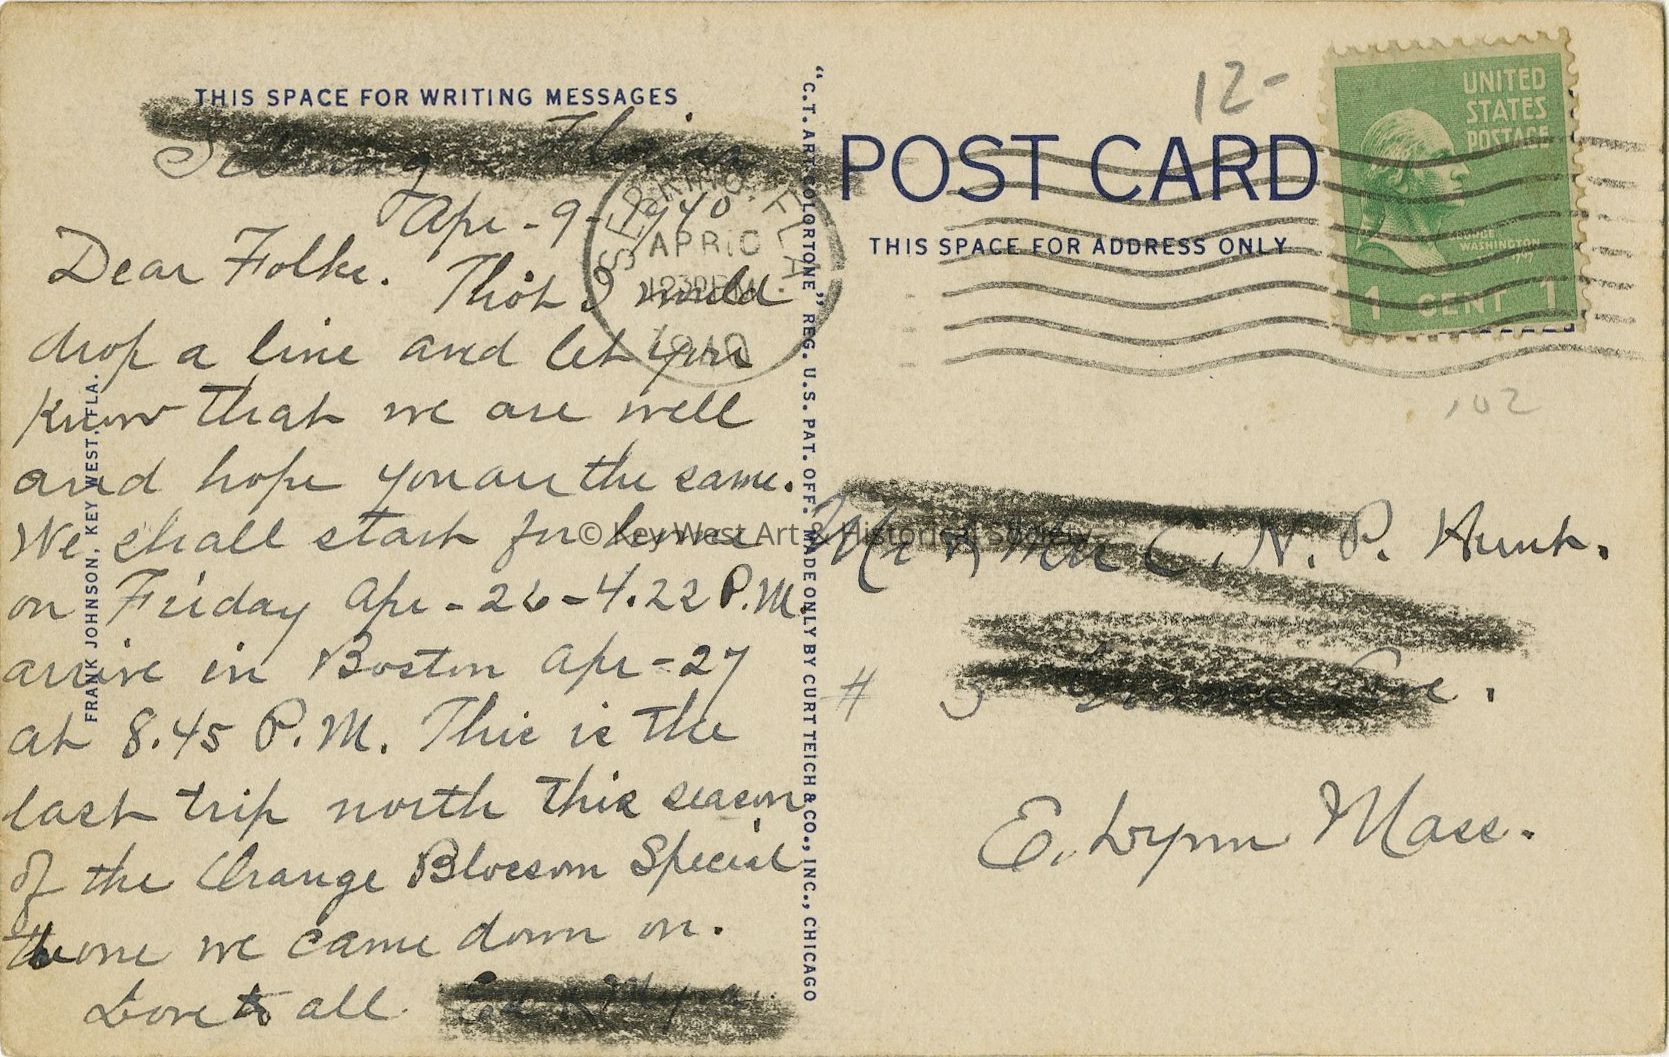 THIS SPACE FOR WRITING MESSAGES
Sebring Florida
Apr-9-1940
Dear Folks. Thot I would
drop a line and let you
know that we are well
and hope you are the same.
We shall start for home
on Friday Apr-26-4.22 P.M.
arrive in Boston Apr-27
at 8.45 P.M. This is the
last trip north this season
of the Orange Blossom Special
the one we came down on.
Love to all
FRANK JOHNSON, KEY WEST, FLA.
"C.T. ART-COLORTONE" REG. U.S. PAT. OFF. MADE ONLY BY CURT TEICH & CO., INC., CHICAGO
SEBRING, FLA.
APR 10
1230 PM
1940
POST CARD
THIS SPACE FOR ADDRESS ONLY
12-
UNITED
STATES
POSTAGE
GEORGE
WASHINGTON
1 CENT 1
.02
© Key West Art & Historical Society
Mr & Mrs C. N. P. Hunt.
# 5 Ave.
E. Lynn Mass.